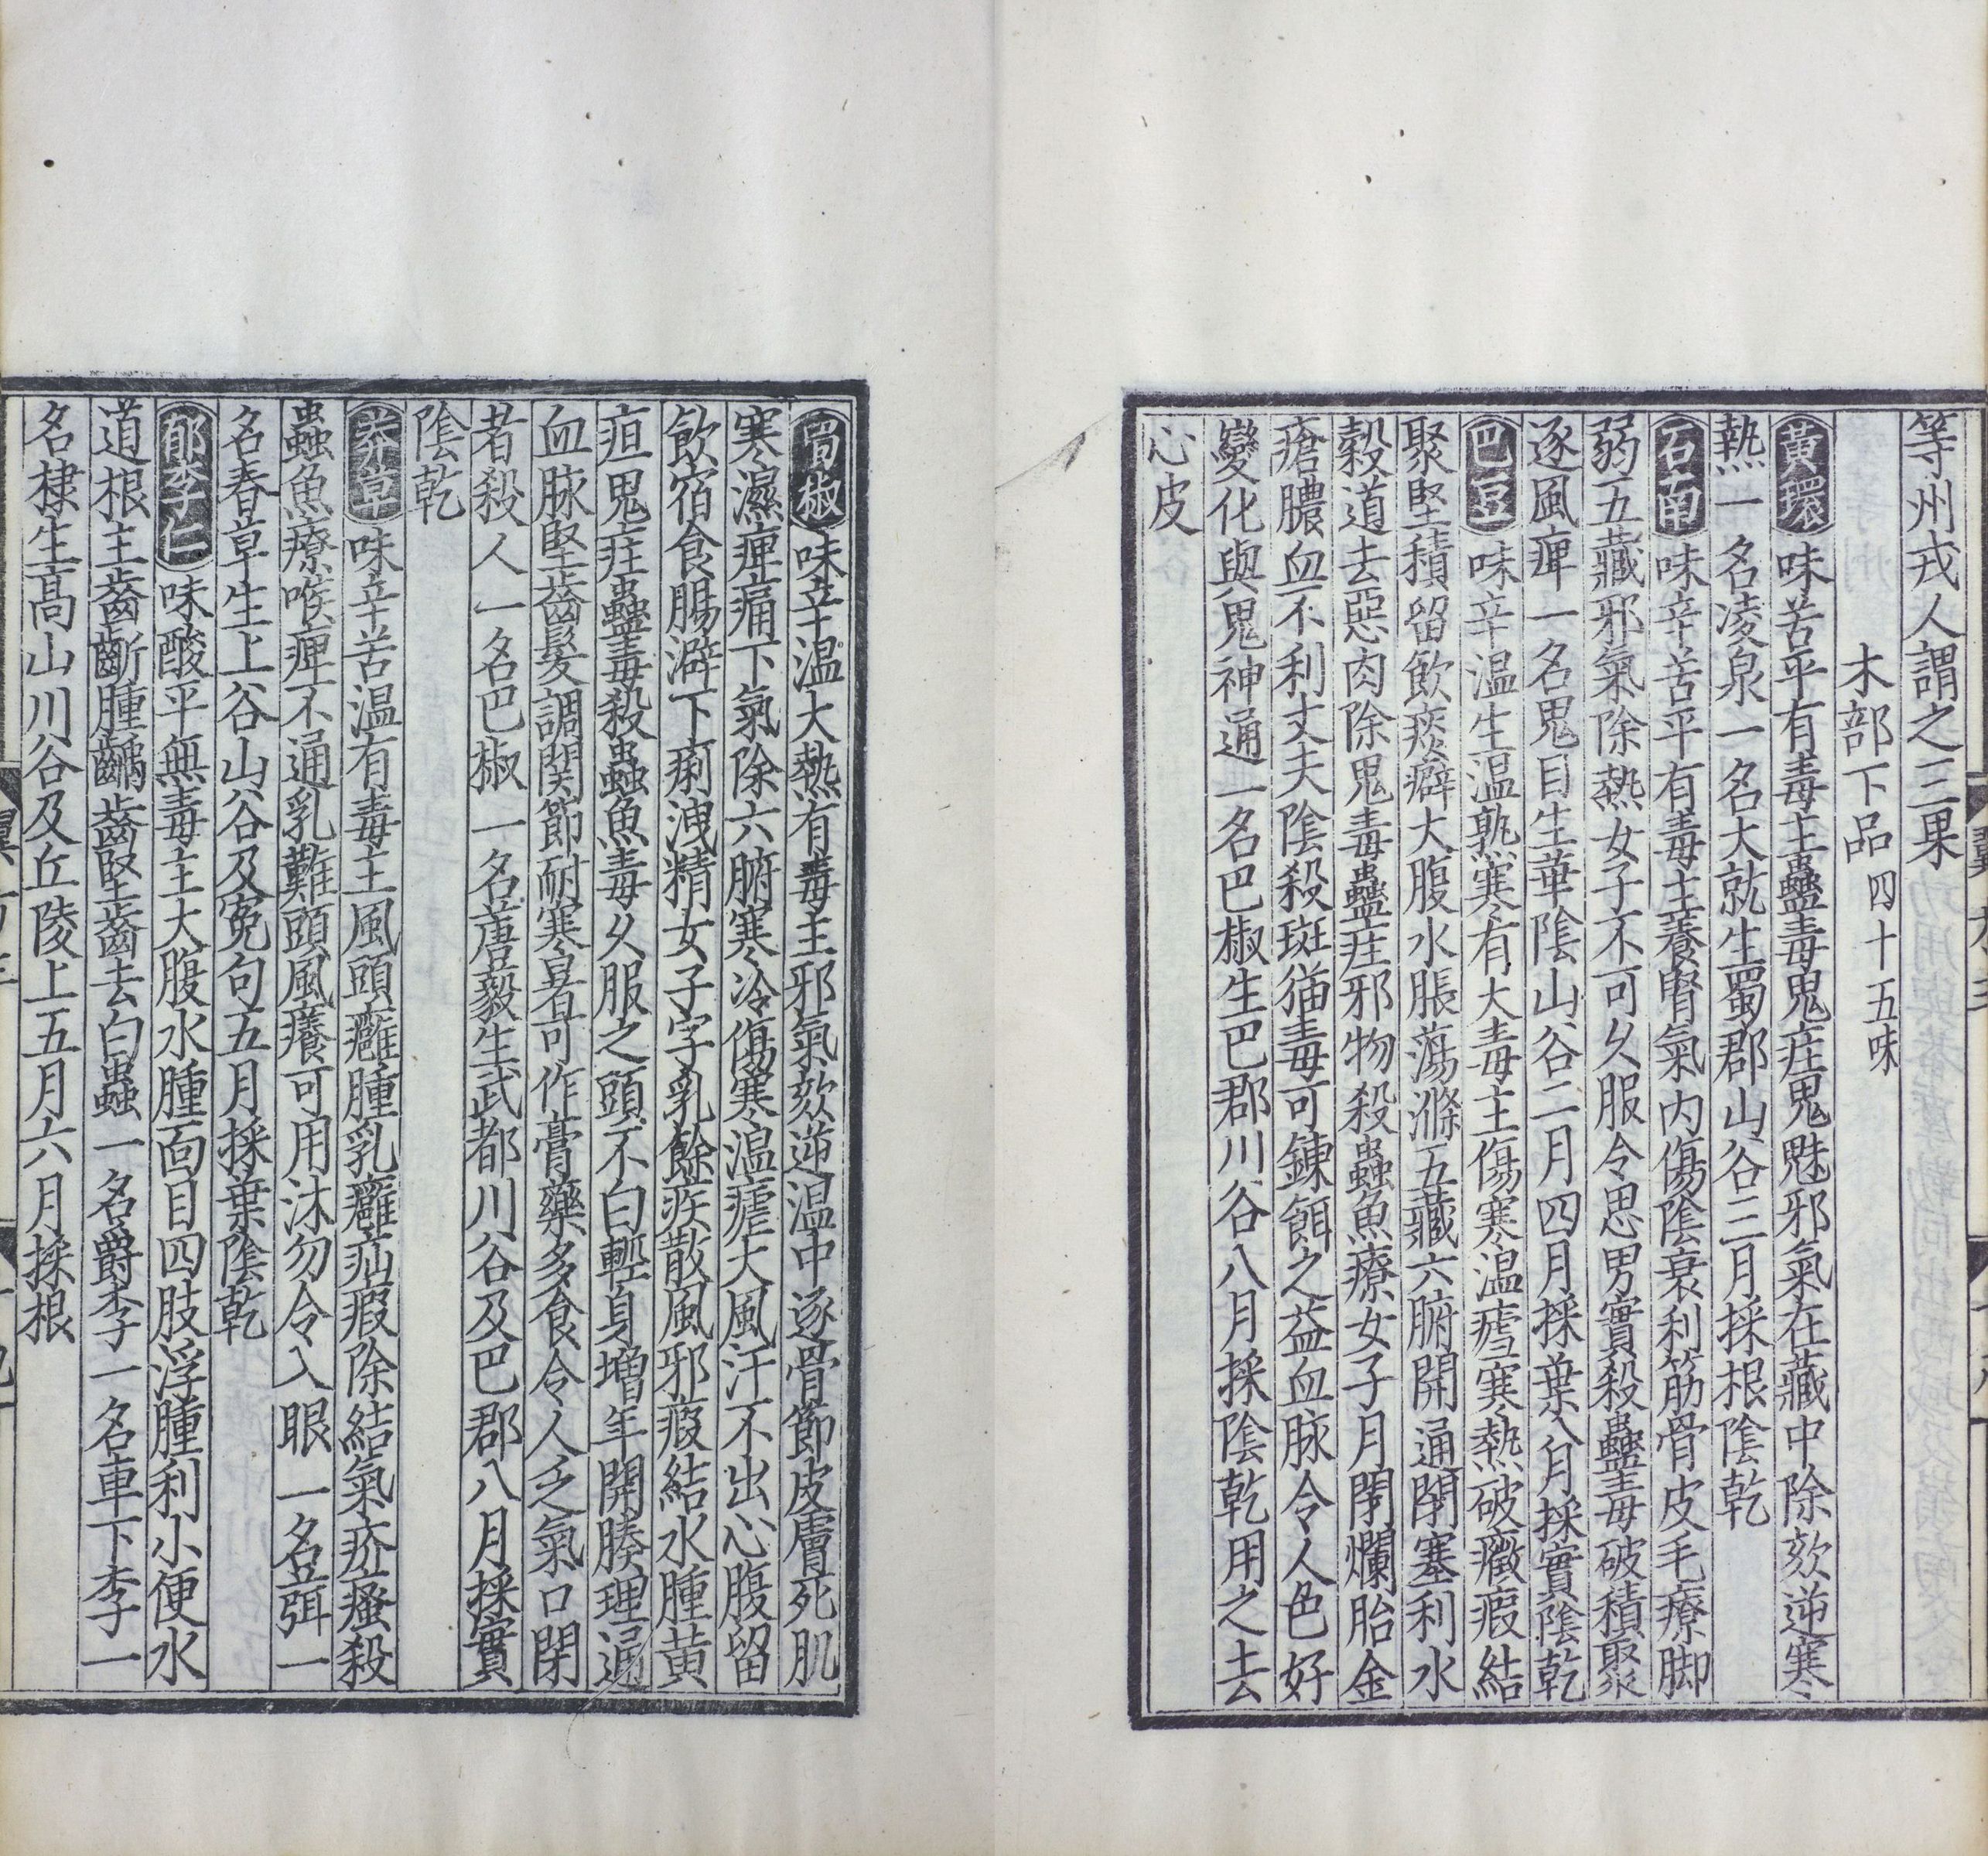 等州戎人謂之三果
木部下品四十五味
黃環味苦平有毒主蠱毒鬼疰鬼魅邪氣在藏中除欬逆寒
熱一名凌泉一名大就生蜀郡山谷三月採根陰乾
石南味辛苦平有毒主養腎氣內傷陰衰利筋骨皮毛療脚
弱五藏邪氣除熱女子不可久服令思男實殺蠱毒破積聚
逐風痺一名鬼目生華陰山谷二月四月採葉八月採實陰乾
巴豆味辛溫生溫熟寒有大毒主傷寒溫瘧寒熱破癥瘕結
聚堅積留飲痰癖大腹水脹蕩滌五藏六腑開通閉塞利水
穀道去惡肉除鬼毒蠱疰邪物殺蟲魚療女子月閉爛胎金
瘡膿血不利丈夫陰殺斑猫毒可鍊餌之益血脉令人色好
變化與鬼神通一名巴椒生巴郡川谷八月採陰乾用之去
心皮
蜀椒味辛溫大熱有毒主邪氣欬逆溫中逐骨節皮膚死肌
寒濕痺痛下氣除六腑寒冷傷寒溫瘧大風汗不出心腹留
飲宿食腸澼下痢洩精女子字乳餘疾散風邪瘕結水腫黃
疸鬼疰蠱毒殺蟲魚毒久服之頭不白輕身增年開腠理通
血脉堅齒髮調関節耐寒暑可作膏藥多食令人乏氣口閉
者殺人一名巴椒一名蓎藙生武都川谷及巴郡八月採實
陰乾
莽草味辛苦溫有毒主風頭癰腫乳癰疝瘕除結氣疥瘙殺
蟲魚療喉痺不通乳難頭風癢可用沐勿令入眼一名葞一
名春草生上谷山谷及冤句五月採葉陰乾
郁李仁味酸平無毒主大腹水腫面目四肢浮腫利小便水
道根主齒齗腫齲齒堅齒去白蟲一名爵李一名車下李一
名棣生高山川谷及丘陵上五月六月採根